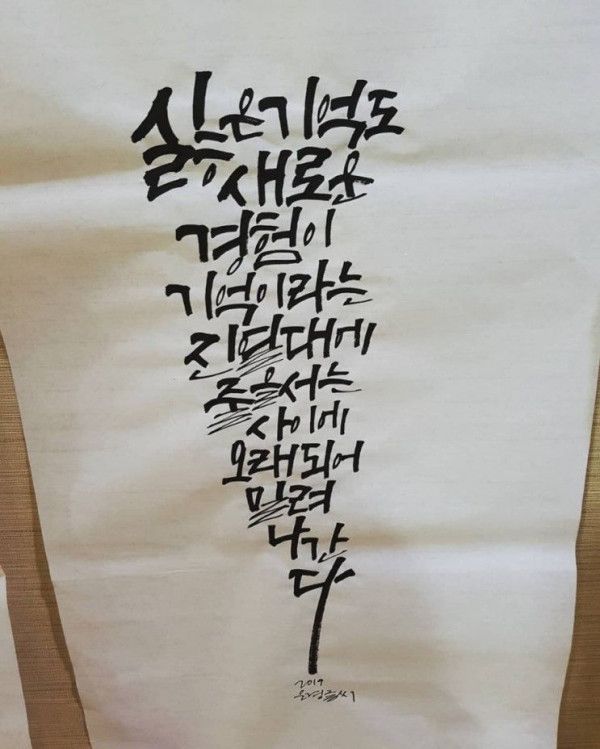 싫은기억도
새로운
경험이
기억이라는
진열대에
줄을서는
사이에
오래되어
밀려
나간
다
2019